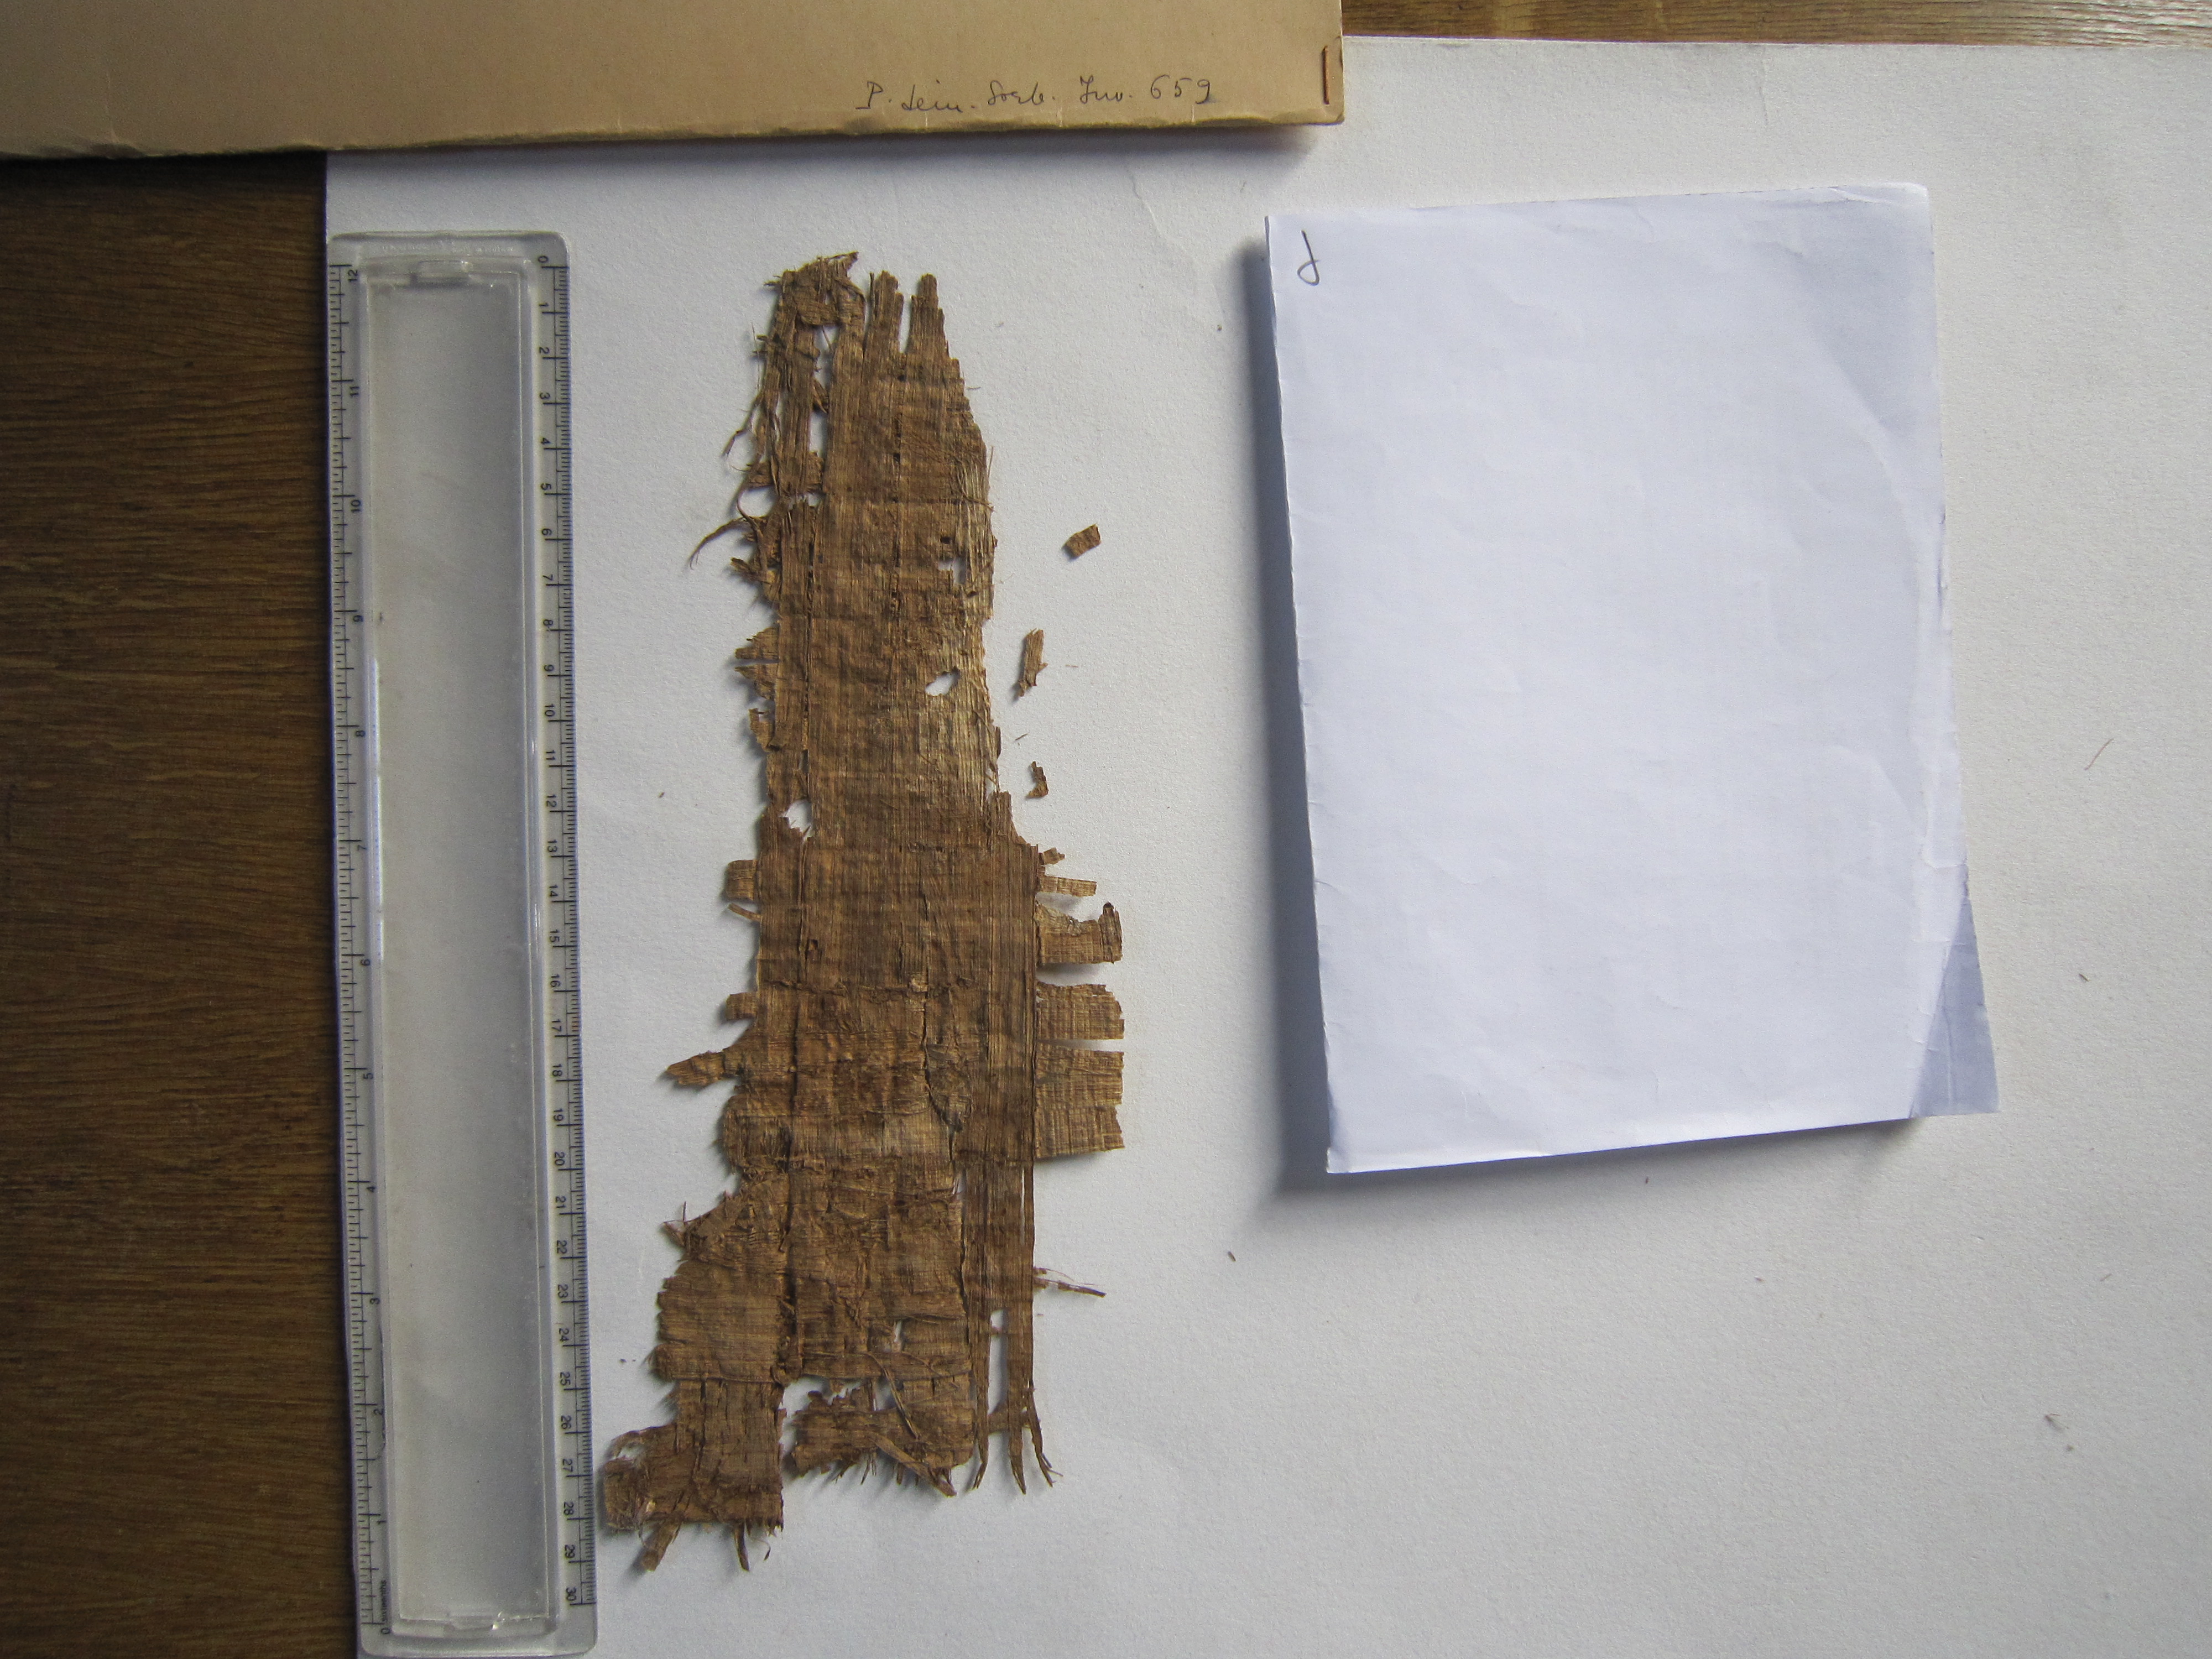 P. Lein. Sorb. Inv. 659
d
0 1 2 3 4 5 6 7 8 9 10 11 12 13 14 15 16 17 18 19 20 21 22 23 24 25 26 27 28 29 30
12 11 10 9 8 7 6 5 4 3 2 1 0